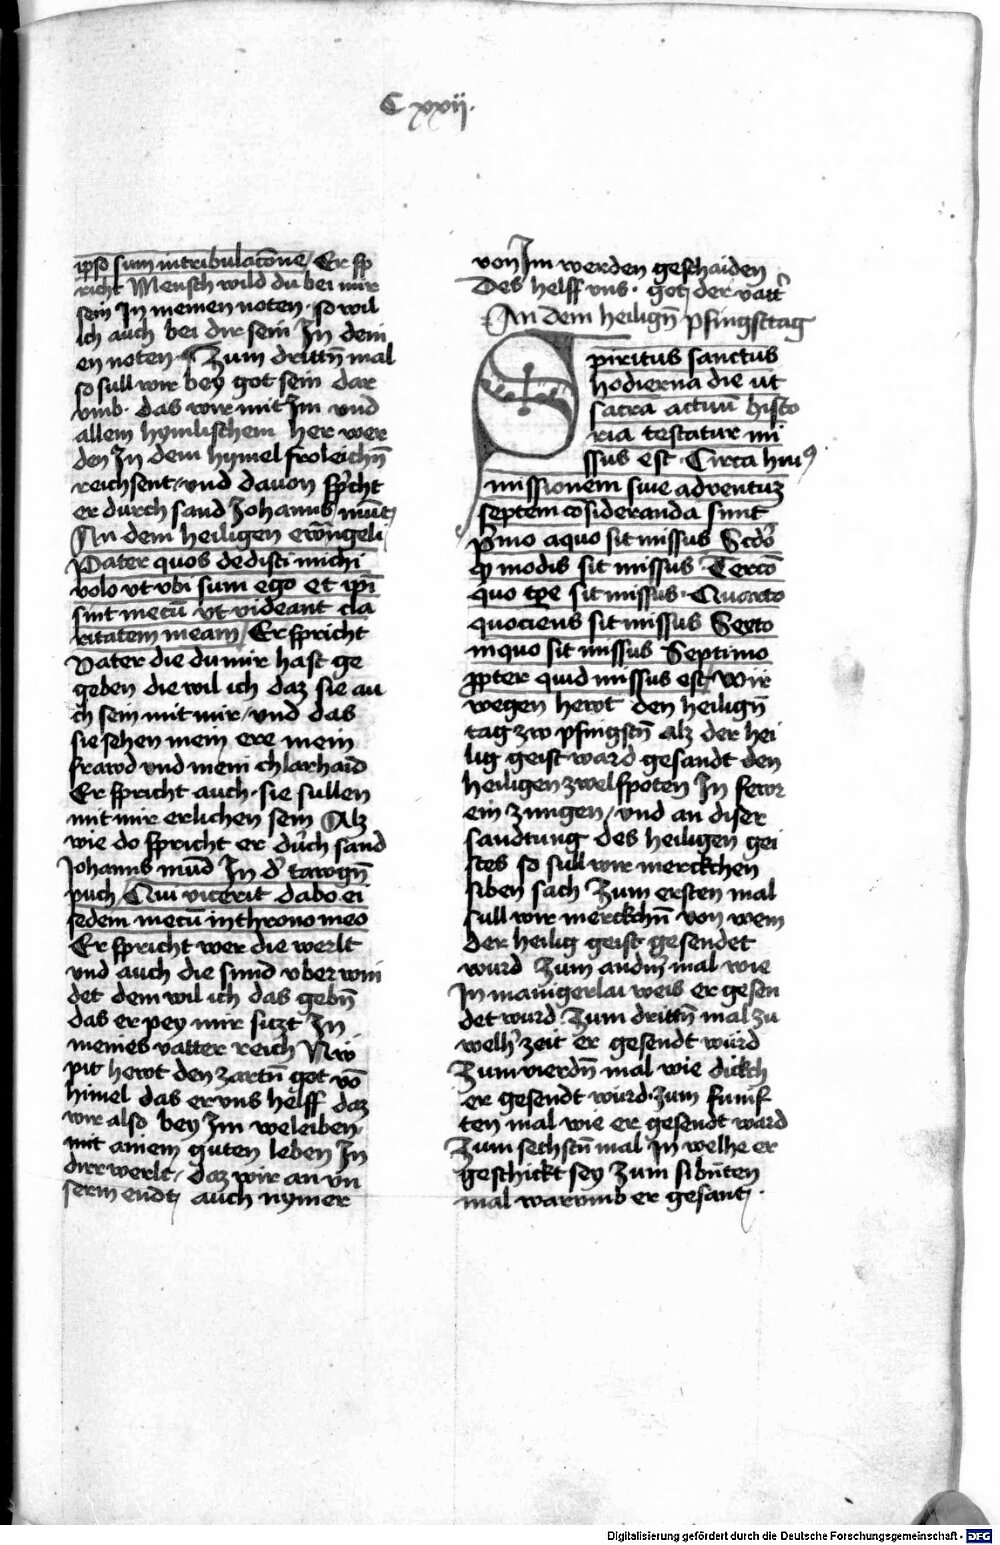 C xxij.
ipso sum in tribulacōne / Er sp
richt Mensch wild du bei mir
sein In meinen noten · so wil
ich auch bei dir sein In dein
en noten · Zum drittn̄ mal
so sull wir bey got sein dar
vmb · das wir mit Im vnd
allem hymlischem her wer
den In dem hymel froleichn̄
reichsent / vnd dauon sp̄cht
er durch sand Johanns mūt
An dem heiligen ewāngeli
Pater quos dedisti michi
volo vt vbi sum ego et ip̄i
sint mecū vt videant cla
ritatem meam / Er spricht
Vater die du mir hast ge
geben die wil ich daz sie au
ch sein mit mir / vnd das
sie sehen mein ere mein
frawd vnd mein chlarhaid
Er spricht auch · sie sullen
mit mir erlichen sein Alz
wie do spricht er durch sand
Johanns mūd In d' tawgn̄
puch Qui vicerit dabo ei
sedem mecū in throno meo
Er spricht wer die werlt
vnd auch die sund vber win
det dem wil ich das gebn̄
das er pey mir siczt In
meines vatter reich Nw
pit hewt den zartn̄ got vō
himel das er vns helff daz
wir also bey Im weleiben
mit ainem guten leben In
dirr werlt / daz wir an vn
serm endt auch nymer
von Im werden geschaiden
Des helff vns · got der vatt'
An dem heilign̄ pfingsttag
Spiritus sanctus
hodierna die ut
sacra actuū histo
ria testatur mi
ssus est · Circa hui9
missionem siue aduentuz
septem cōsideranda sunt
P'mo a quo sit missus Scdō
q̄ modis sit missus Tercō
quo tpe sit missus · Quarto
quociens sit missus Sexto
in quo sit missus Septimo
ꝓpter quid missus est / Wir
wegen hewt den heilign̄
tag zw pfingstn̄ alz der hei
lig geist ward gesandt den
heiligen zwelfpoten In fewr
ein zungen / vnd an diser
sandtung des heiligen gei
stes so sull wir merckchen
siben sach Zum ersten mal
sull wir merckchn̄ von wem
der heilig geist gesendet
wurd Zum andn̄ mal wie
In manigerlai weis er gesen
det wurd Zum drittn̄ mal zu
welh' zeit er gesendt wurd
Zum vierdn̄ mal wie dickch
er gesendt wurd · Zum funf
ten mal wie er gesendt ward
Zum sechstn̄ mal In welhe er
geschickt sey Zum sibn̄ten
mal warumb er gesant ·
Digitalisierung gefördert durch die Deutsche Forschungsgemeinschaft - DFG